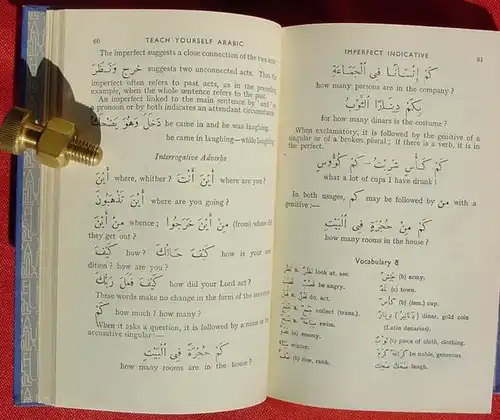 60 TEACH YOURSELF ARABIC
The imperfect suggests a close connection of the two acts
خرج وَنَظَرَ
suggests two unconnected acts. Thus the
imperfect often refers to past acts, as in the preceding
example, when the whole sentence refers to the past.
An imperfect linked to the main sentence by "and"
a pronoun or by both indicates an attendant circumstance
دَخَلَ وَهُوَ يَضْحَكُ he came in and he was laughing,
he came in laughing—while laughing
Interrogative Adverbs
أَيْنَ where, whither? أَيْنَ أَنْتَ where are you?
أَيْنَ تَذْهَبُونَ where are you going?
مِنْ أَيْنَ whence; مِنْ أَيْنَ خَرَجُوا (from) where did
they get out?
كَيْفَ how? كَيْفَ حَالُكَ how is your con-
dition? how are you?
كَيْفَ فَعَلَ رَبُّكَ how did your Lord act?
These words make no change in the form of the sentence
كَمْ how much? how many?
When it asks a question, it is followed by a noun in the
accusative singular:—
كَمْ حُجْرَةً فِي الْبَيْتِ
how many rooms are in the house?
IMPERFECT INDICATIVE 61
كَمْ إِنْسَانًا فِي الْجَمَاعَةِ
how many persons are in the company?
بِكَمْ دِينَارًا الثَّوْبُ
for how many dinars is the costume?
When exclamatory, it is followed by the genitive of a
singular or of a broken plural; if there is a verb, it is in
the perfect.
كَمْ كَأْسٍ شَرِبْتُ—كَمْ كُؤُوسٍ
what a lot of cups I have drunk!
In both usages, كَمْ may be followed by مِنْ with a
genitive:—
كَمْ مِنْ حُجْرَةٍ فِي الْبَيْتِ
how many rooms in the house?
Vocabulary 8
look at, see. (b) army.
be angry. (c) town.
do, act. (b) (fem.) cup.
collect (trans.) dinar, gold coin
swim. (Latin denarius).
(a) enemy. (b) piece of cloth, clothing.
winter. be noble, generous
(b) row, rank. laugh.